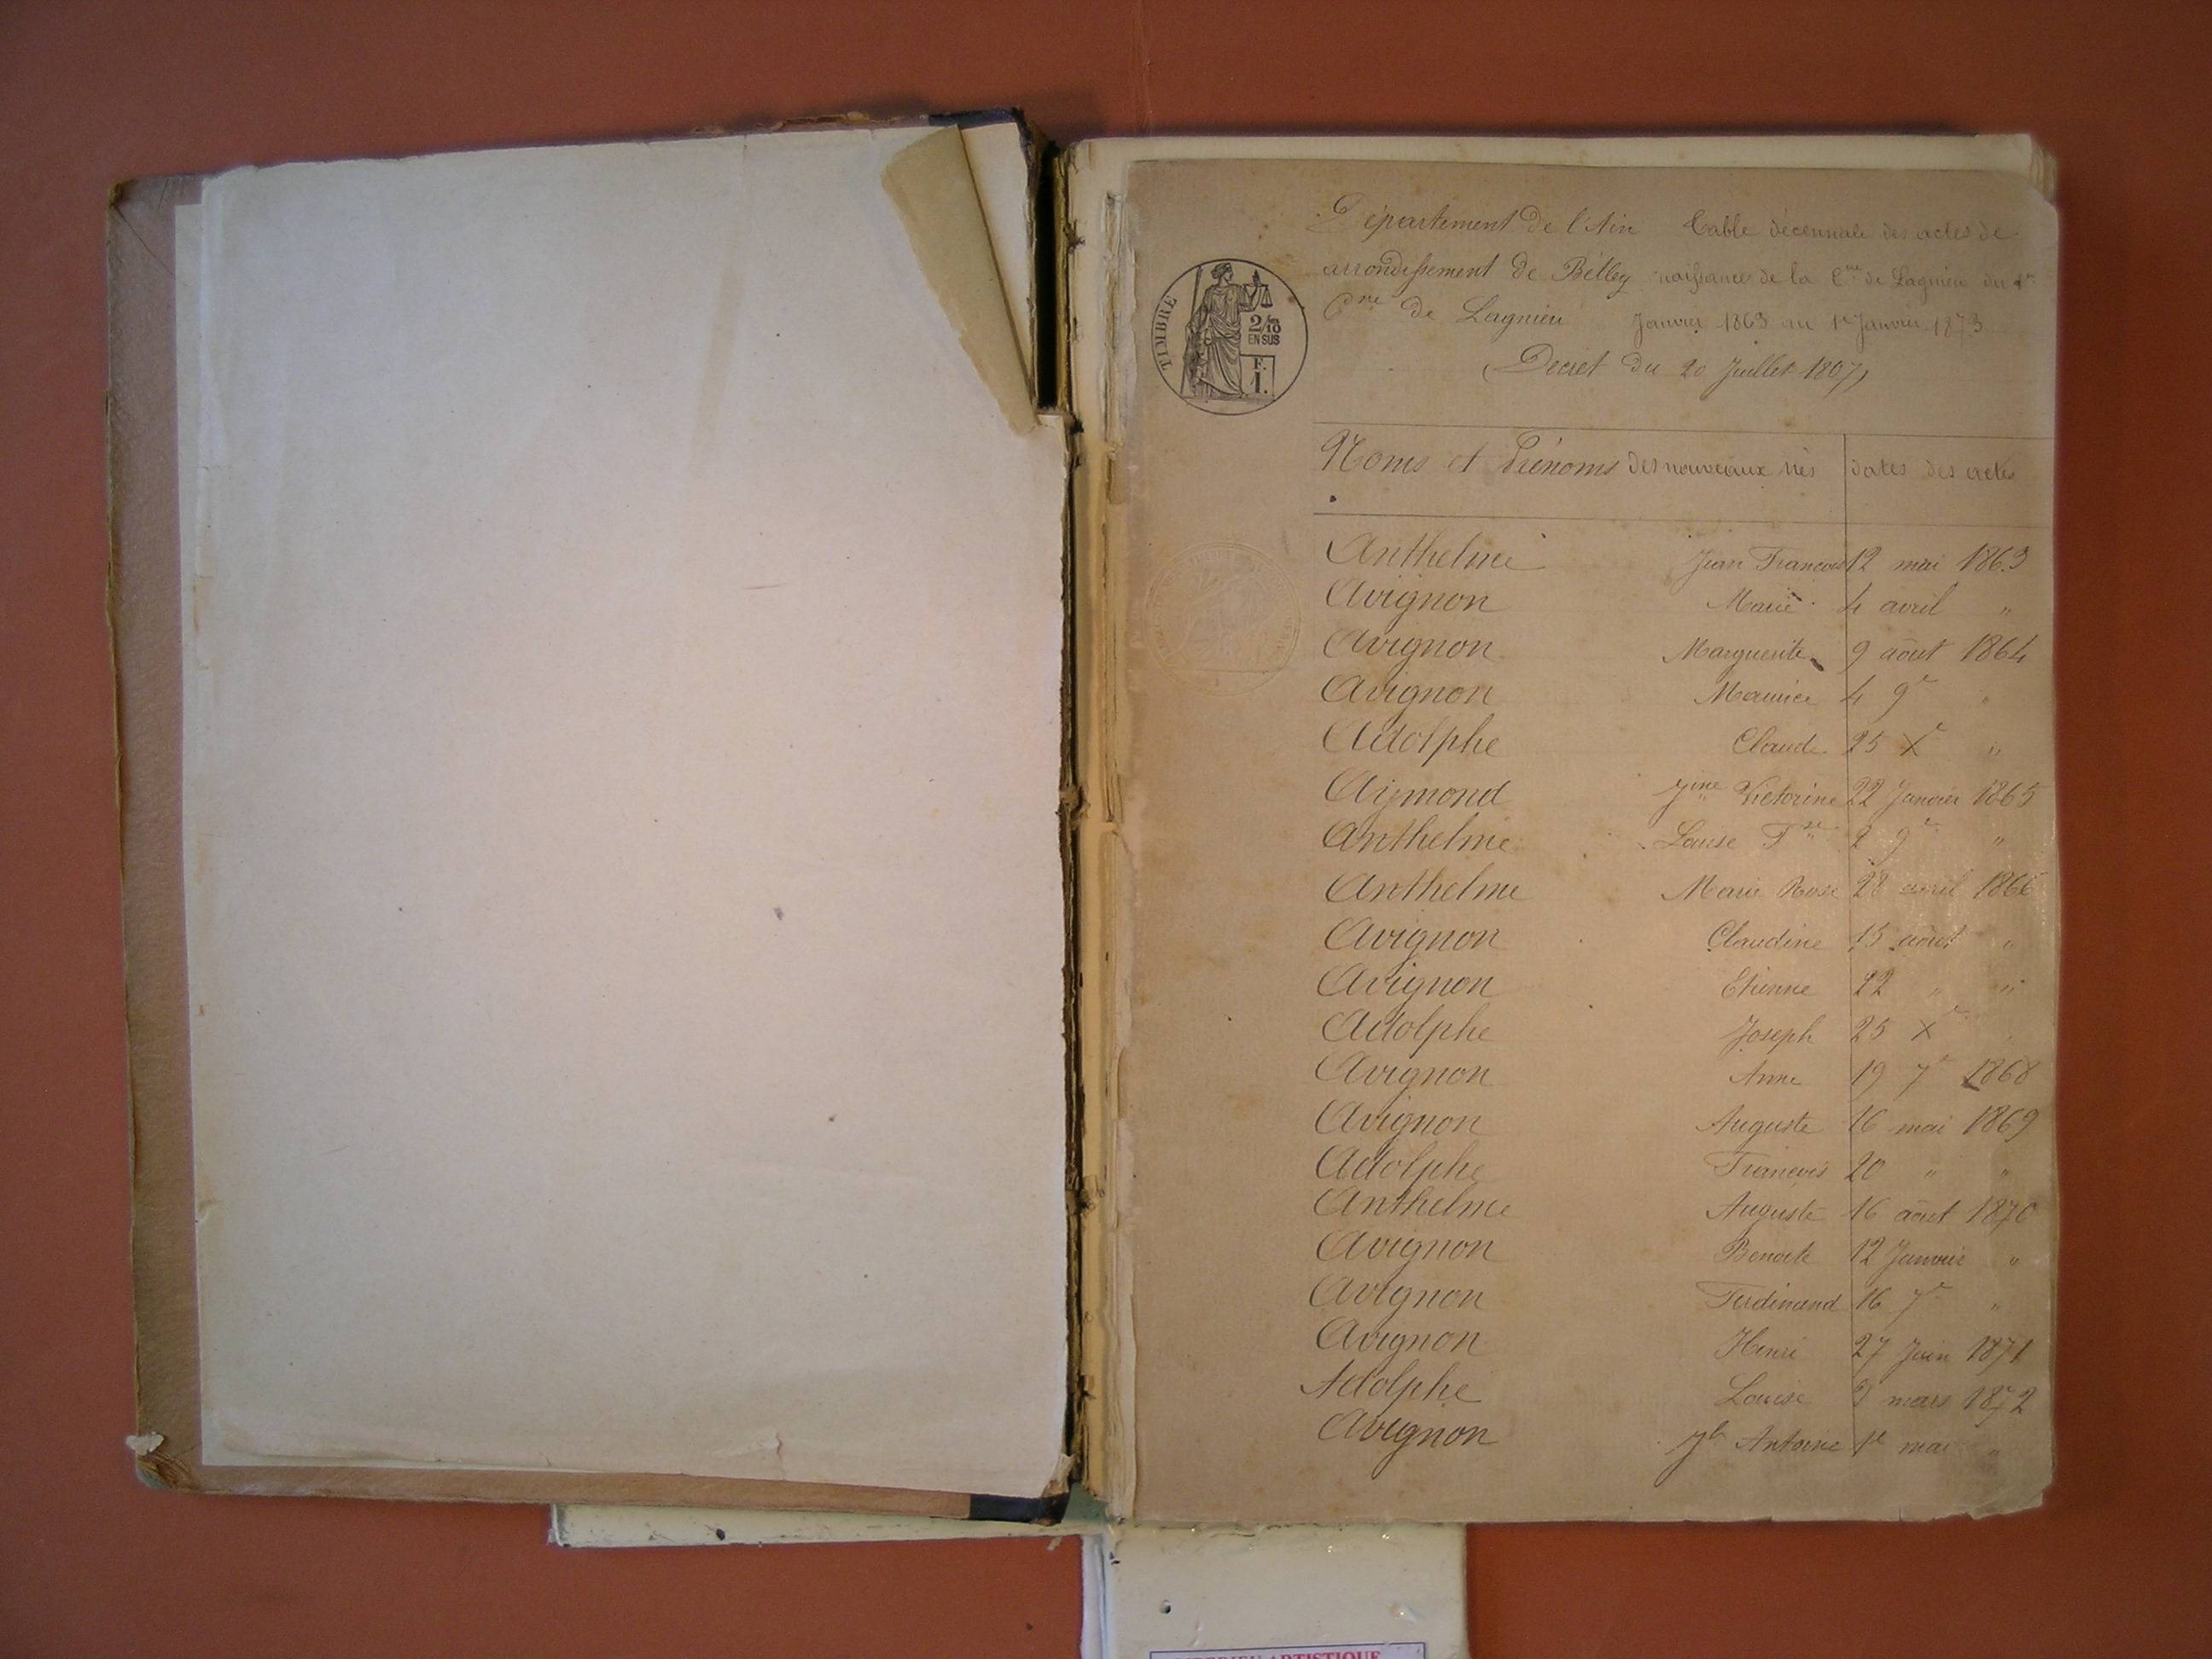 Département de l'Ain Table décennale des actes de
arrondissement de Belley naissances de la Cne de Lagnieu du 1er
Cne de Lagnieu Janvier 1863 au 1er Janvier 1873
(Décret du 20 Juillet 1807)
TIMBRE
2/10
EN SUS
F.
1.
Noms et Prénoms des nouveaux nés dates des actes
Anthelme Jean Francois 12 mai 1863
Avignon Marie 4 avril "
Avignon Marguerite 9 août 1864
Avignon Maurice 4 9r "
Adolphe Claude 25 Xr "
Aymond Victorine 22 Janvier 1865
Anthelme Louise 2 9r "
Anthelme Marie Rose 28 avril 1866
Avignon Claudine 15 août "
Avignon Etienne 22 " "
Adolphe Joseph 25 Xr
Avignon Anne 19 7r 1868
Avignon Auguste 16 mai 1869
Adolphe Francois 20 " "
Anthelme Auguste 16 août 1870
Avignon Benoite 12 Janvier "
Avignon Ferdinand 16 7r "
Avignon Henri 27 Juin 1871
Adolphe Louise mars 1872
Avignon Jh Antoine 1r mai "
ARTISTIQUE